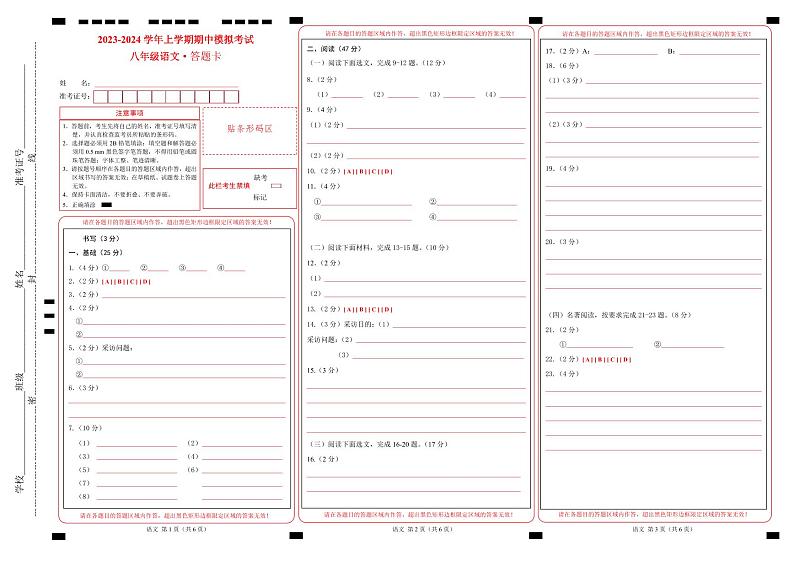 2023-2024 学年上学期期中模拟考试
八年级语文·答题卡
姓　名：
准考证号：
注意事项
1．答题前，考生先将自己的姓名，准考证号填写清
楚，并认真检查监考员所粘贴的条形码。
2．选择题必须用 2B 铅笔填涂；填空题和解答题必
须用 0.5 mm 黑色签字笔答题，不得用铅笔或圆
珠笔答题；字体工整、笔迹清晰。
3．请按题号顺序在各题目的答题区域内作答，超出
区域书写的答案无效；在草稿纸、试题卷上答题
无效。
4．保持卡面清洁，不要折叠、不要弄破。
5．正确填涂
贴条形码区
此栏考生禁填
缺考
标记
请在各题目的答题区域内作答，超出黑色矩形边框限定区域的答案无效！
书写（3 分）
一、基础（25 分）
1.（4 分）①　②　③　④
2.（2 分）[A][B][C][D]
3.（2 分）
4.（2 分）
①
②
5.（2 分）采访问题：
①
②
6.（3 分）
7.（10 分）
（1）　（2）
（3）　（4）
（5）　（6）
（7）
（8）
请在各题目的答题区域内作答，超出黑色矩形边框限定区域的答案无效！
语文 第 1 页（共 6 页）
学校　班级　姓名　准考证号
密　封　线
请在各题目的答题区域内作答，超出黑色矩形边框限定区域的答案无效！
二、阅读（47 分）
（一）阅读下面选文，完成 9-12 题。（12 分）
8.（2 分）
（1）　（2）　（3）　（4）
9.（4 分）
（1）（2 分）
（2）（2 分）
10.（2 分）[A][B][C][D]
11.（4 分）
①　②
③　④
（二）阅读下面材料，完成 13-15 题。（10 分）
12.（2 分）
（1）
（2）
13.（2 分）[A][B][C][D]
14.（3 分）采访目的：（1）
采访问题：（2）
（3）
15.（3 分）
（三）阅读下面选文，完成 16-20 题。（17 分）
16.（2 分）
请在各题目的答题区域内作答，超出黑色矩形边框限定区域的答案无效！
语文 第 2 页（共 6 页）
请在各题目的答题区域内作答，超出黑色矩形边框限定区域的答案无效！
17.（2 分）A：　B：
18.（6 分）
（1）（3 分）
（2）（3 分）
19.（4 分）
20.（3 分）
（四）名著阅读，按要求完成 21-23 题。（8 分）
21.（2 分）
①　②
22.（2 分）[A][B][C][D]
23.（4 分）
请在各题目的答题区域内作答，超出黑色矩形边框限定区域的答案无效！
语文 第 3 页（共 6 页）